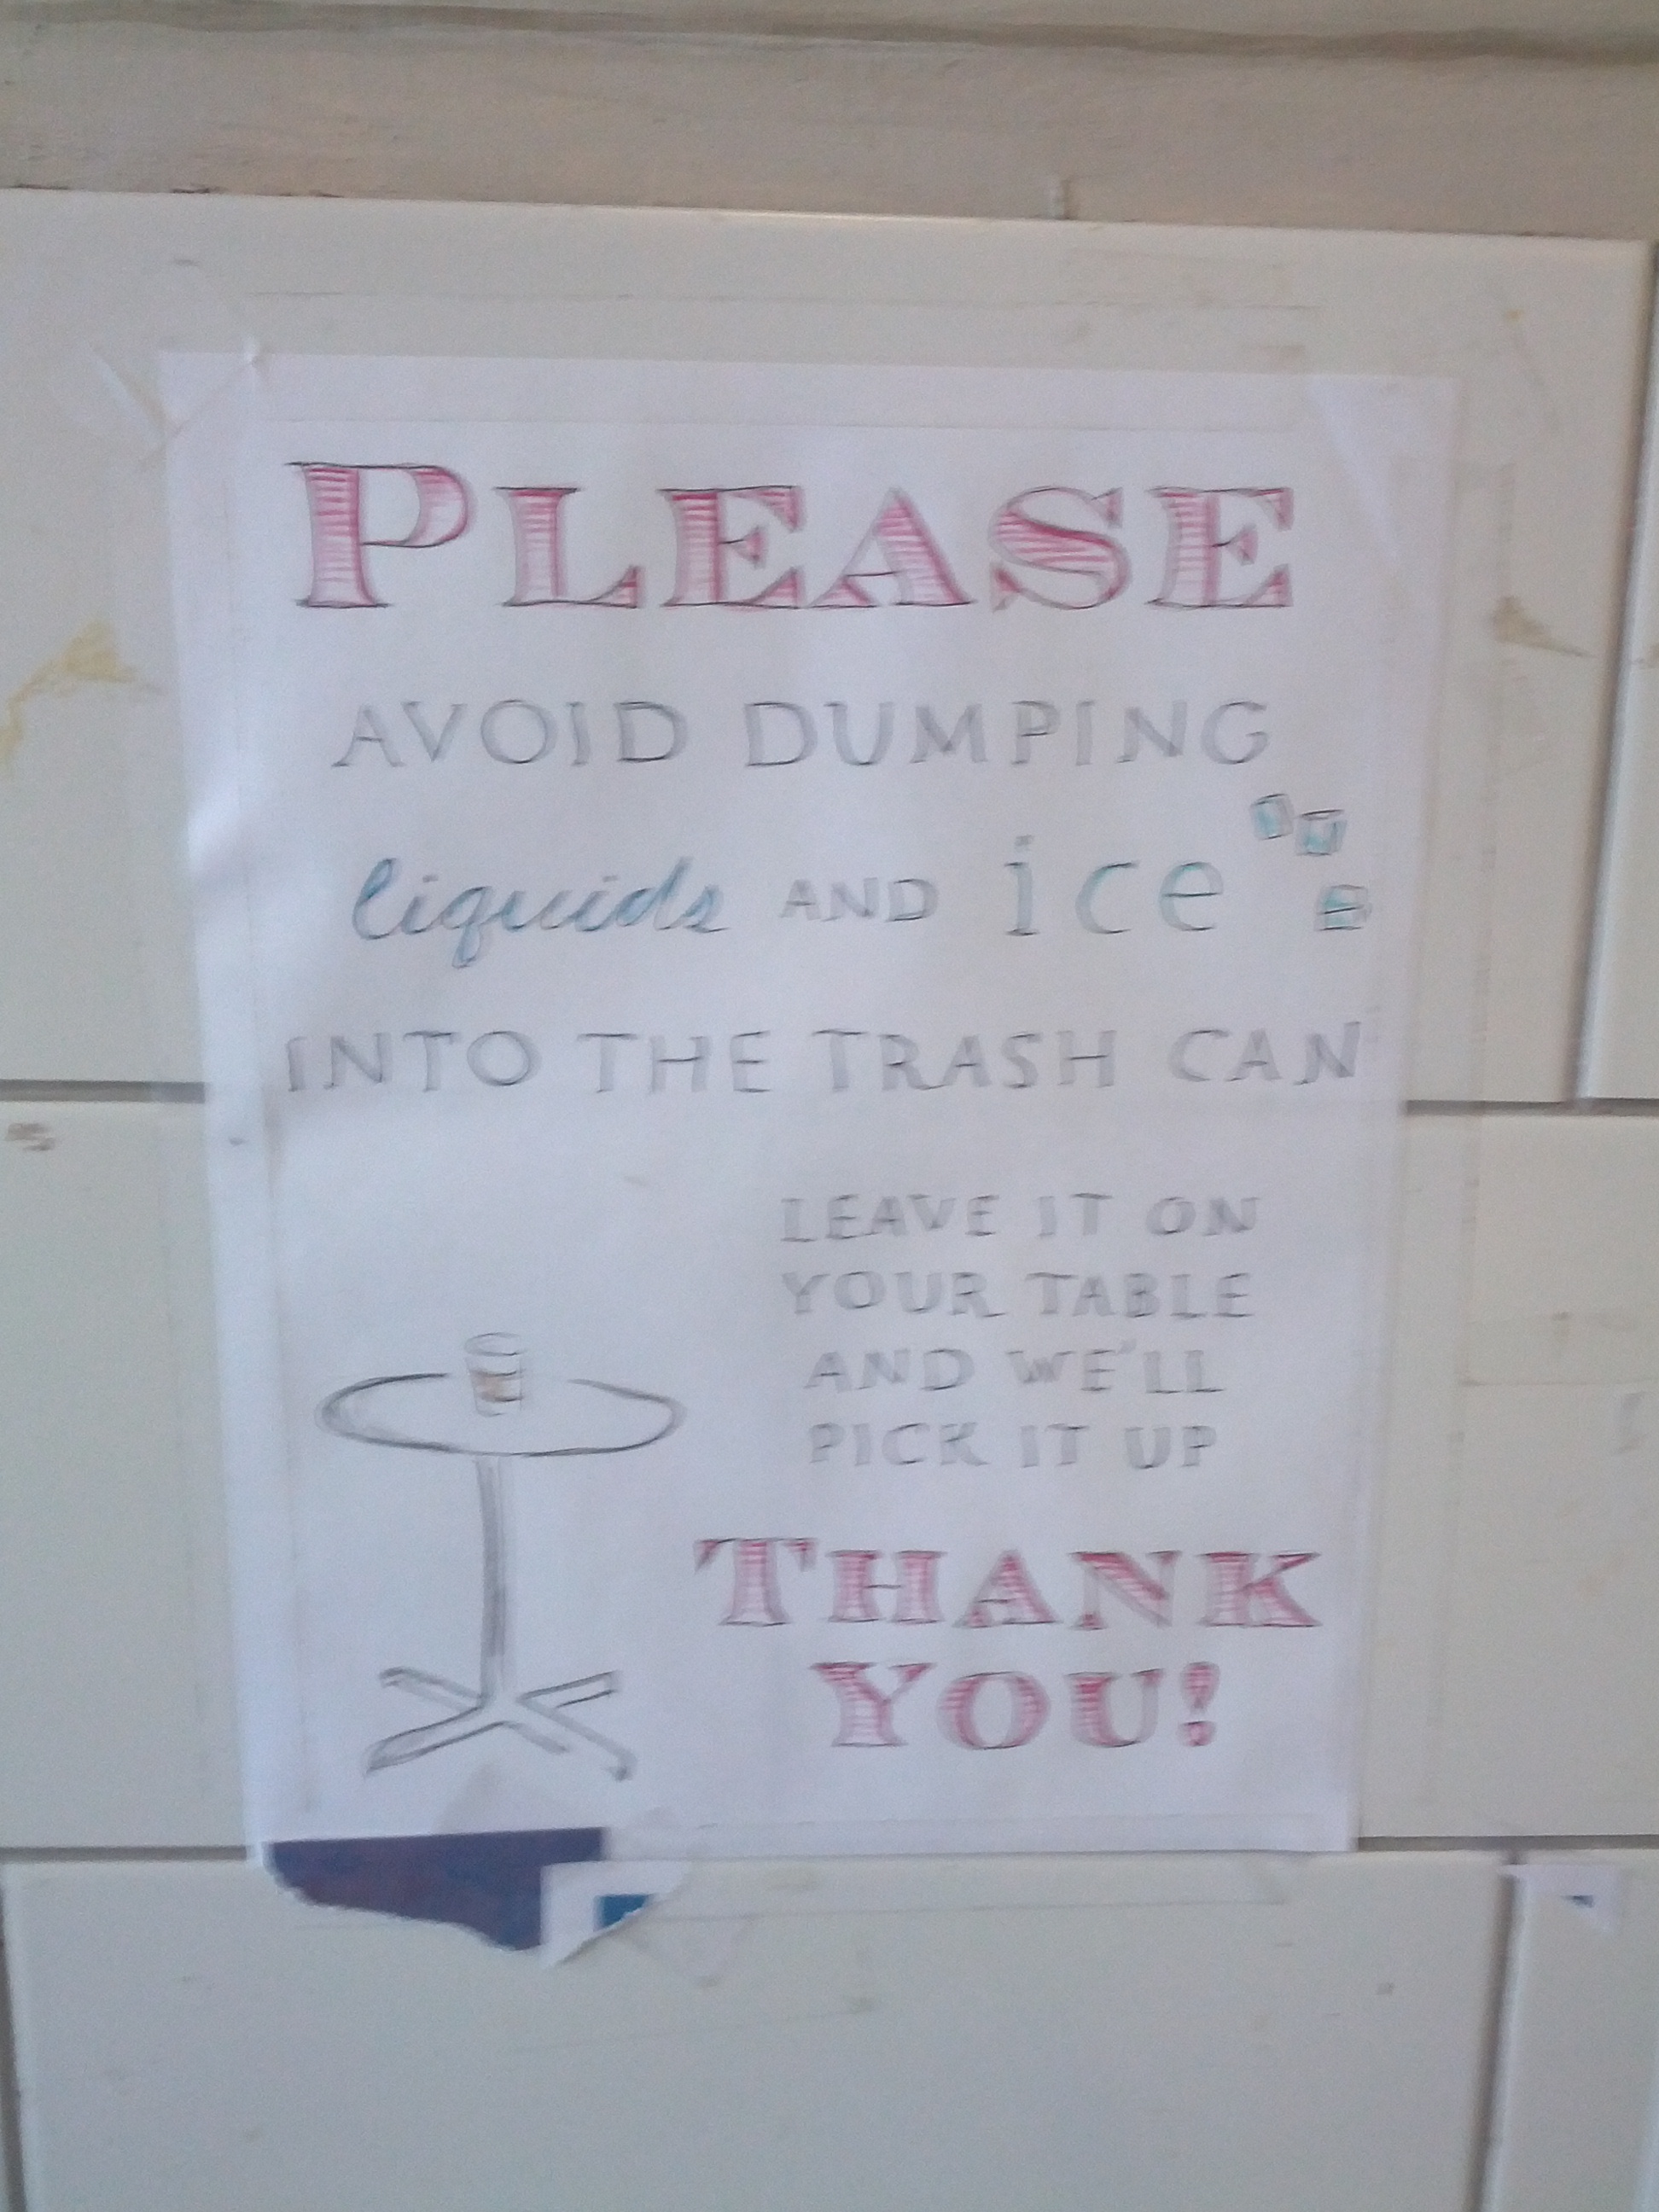 PLEASE
AVOID DUMPING
liquids AND ice
INTO THE TRASH CAN
LEAVE IT ON
YOUR TABLE
AND WE'LL
PICK IT UP
THANK
YOU!